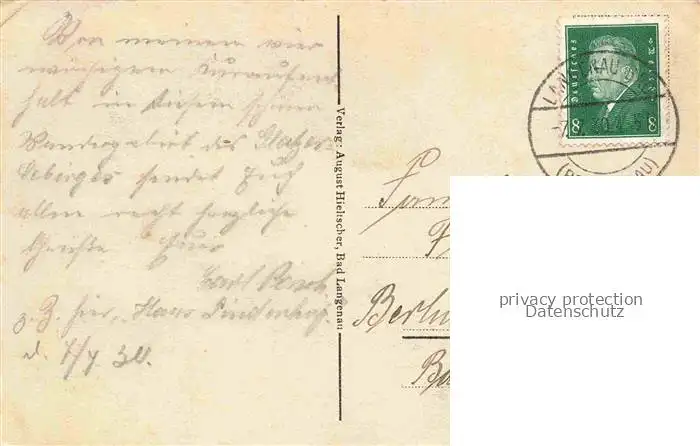 Von meinem vier
wöchigem Kuraufent
halt in diesem schönen
Wandergebiet des Glatzer-
sendet Euch
allen recht herzliche
Grüße Euer
Carl
z. Z. hier, Haus Lindenhof.
d. 7/4 30.
Verlag: August Hielscher, Bad Langenau
Deutsches Reich
8 8
Fam
Berlin
privacy protection
Datenschutz